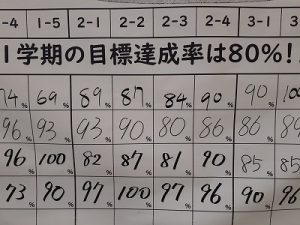 -4 1-5 2-1 2-2 2-3 2-4 3-1 3
1学期の目標達成率は80%!
74% 69% 89% 87% 84% 90% 90% 100
96% 93% 93% 90% 80% 86% 86% 89
96% 100% 82% 87% 81% 90% 85% 85
73% 90% 97% 100% 97% 96% 90% 96